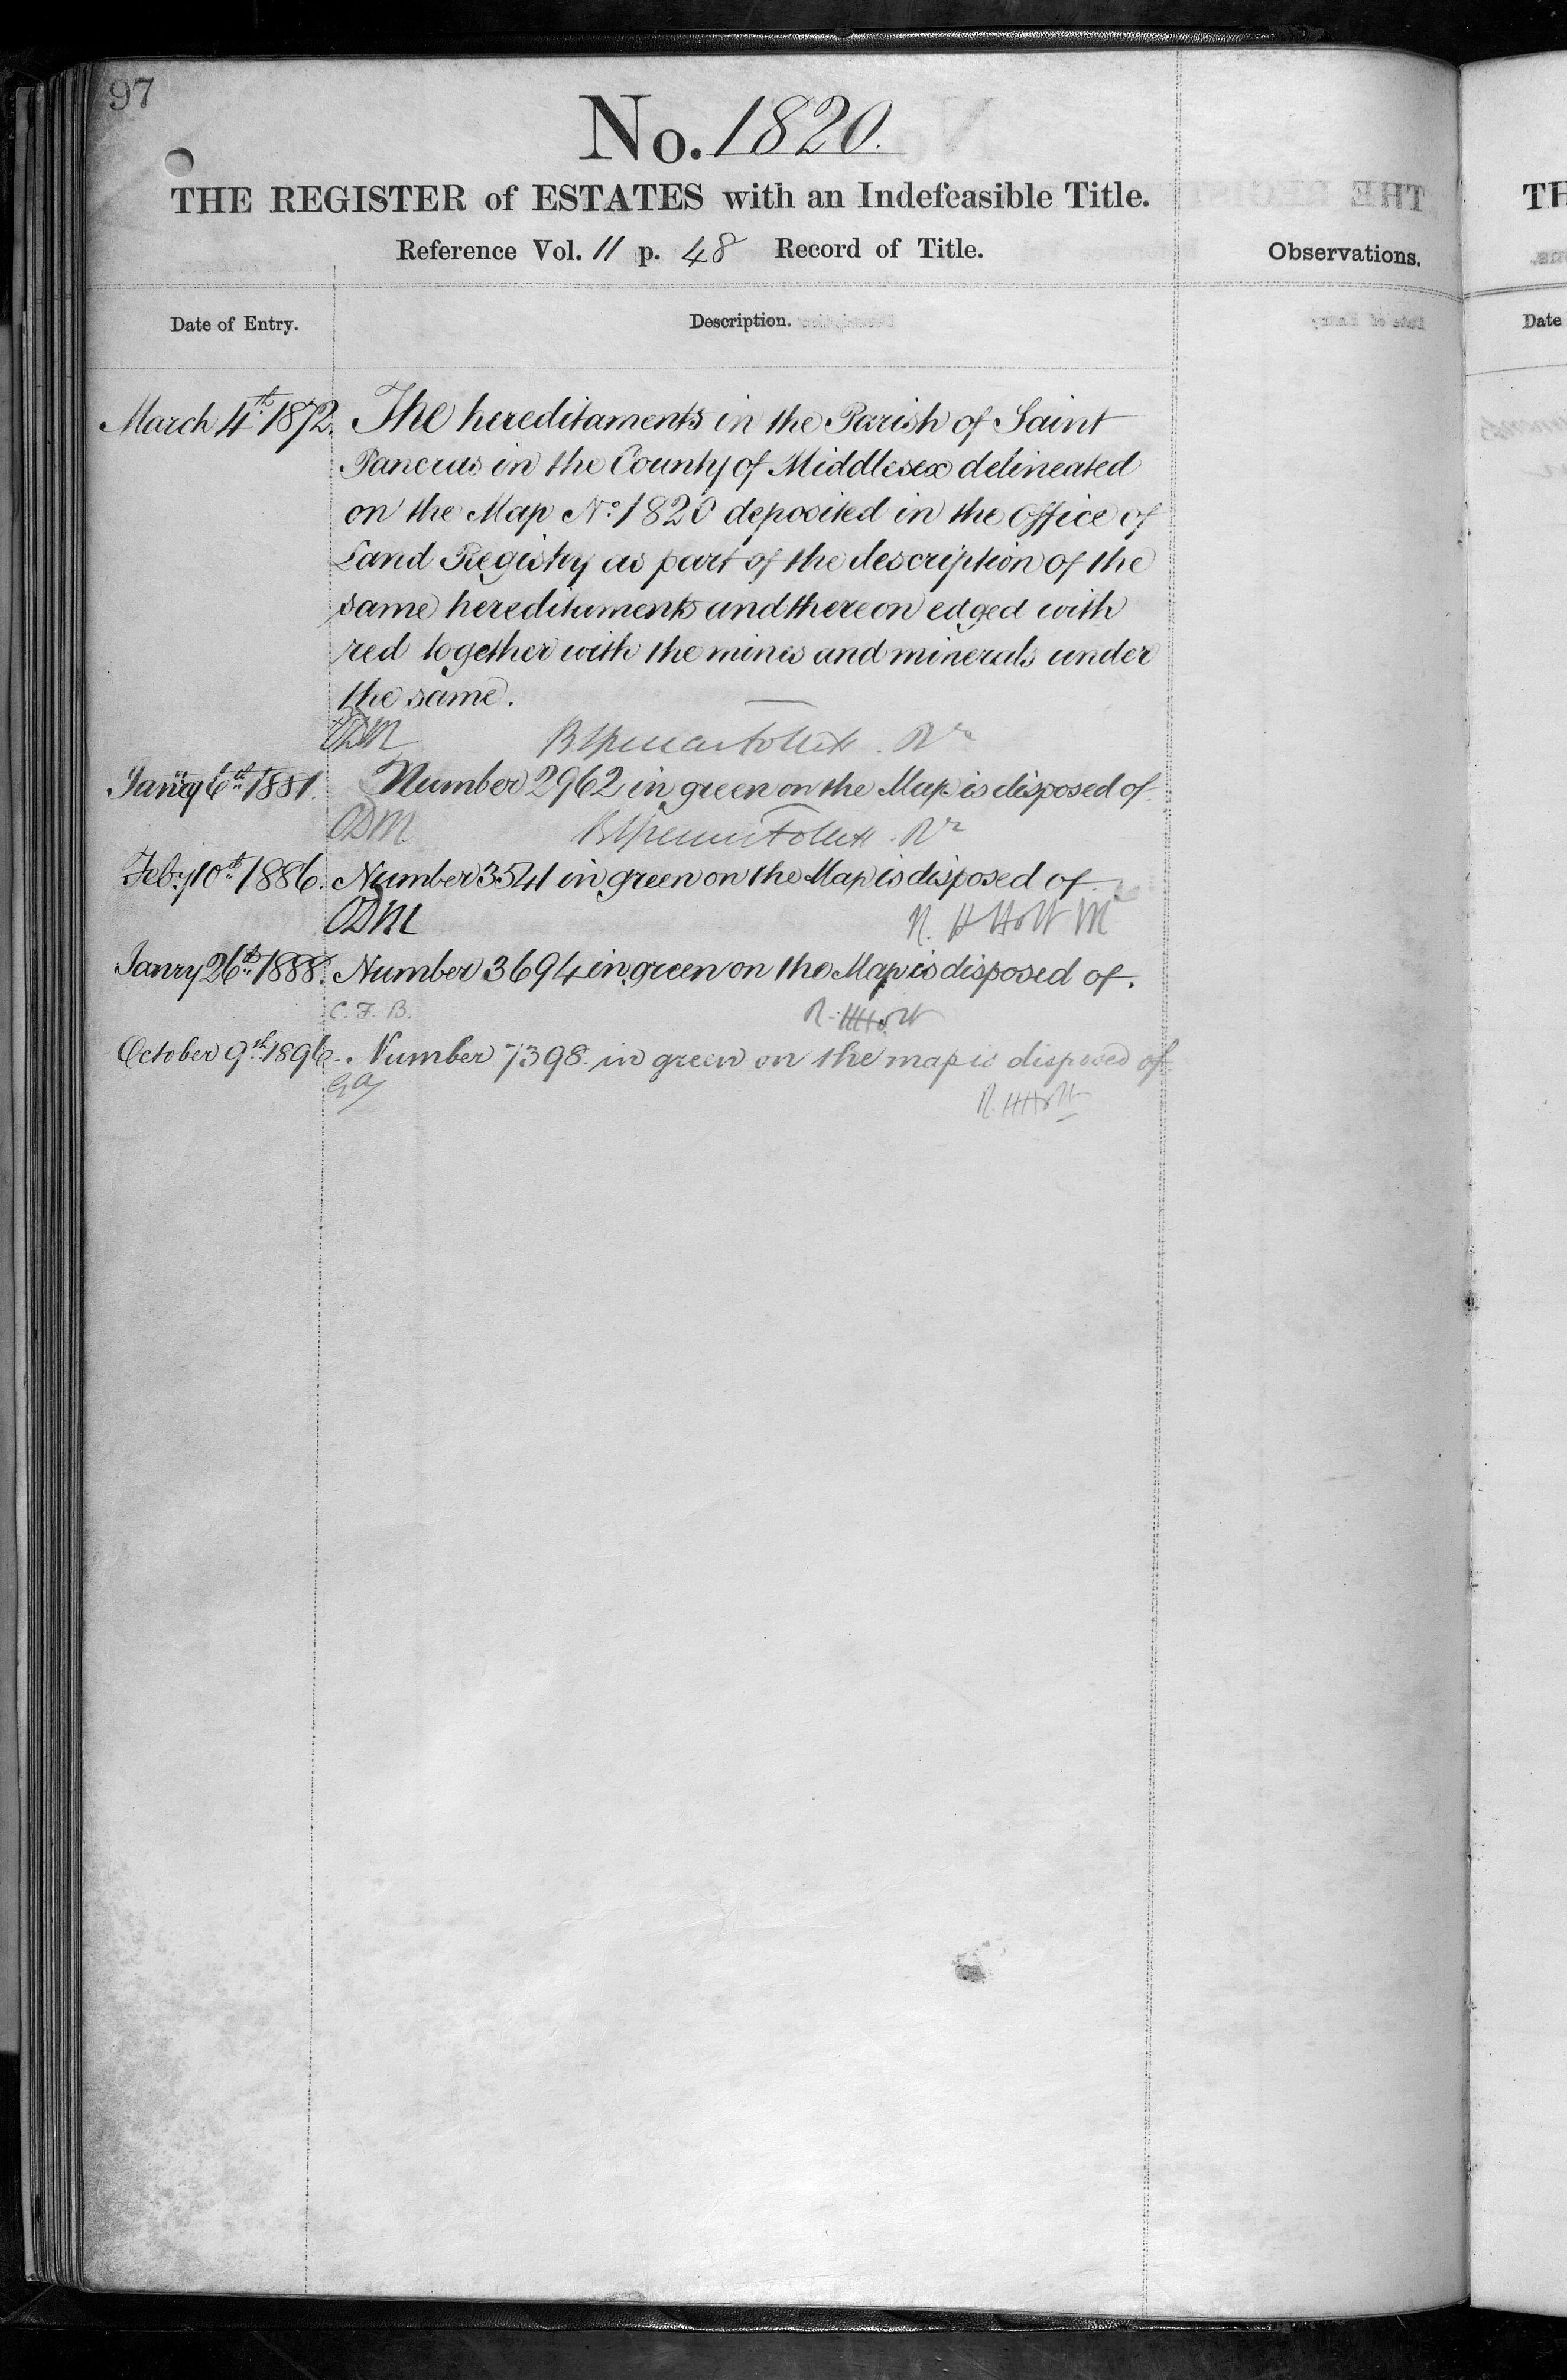 97
No. 1820.
THE REGISTER of ESTATES with an Indefeasible Title.
Reference Vol. 11 p. 48 Record of Title.
Observations.
Date of Entry.
Description.
March 4th 1872. The hereditaments in the Parish of Saint
Pancras in the County of Middlesex delineated
on the Map No. 1820 deposited in the Office of
Land Registry as part of the description of the
same hereditaments and thereon edged with
red together with the mines and minerals under
the same.
Rr
Janry 6th 1881. Number 2962 in green on the Map is disposed of.
ODM Rr
Feby 10th 1886. Number 3541 in green on the Map is disposed of
ODM R. H Holt
Janry 26th 1888. Number 3694 in green on the Map is disposed of.
C. F. B. R. H Holt
October 9th 1896. Number 7398 in green on the map is disposed of
R. H Holt
TH
Date